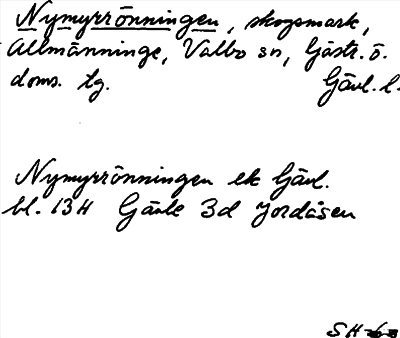 Nymyrrönningen, skogsmark,
Allmänninge, Valbo sn, Gästr. ö.
doms. tg. Gävl. l.
Nymyrrönningen ek Gävl.
bl. 13H Gävle 3d Jordåsen
SH